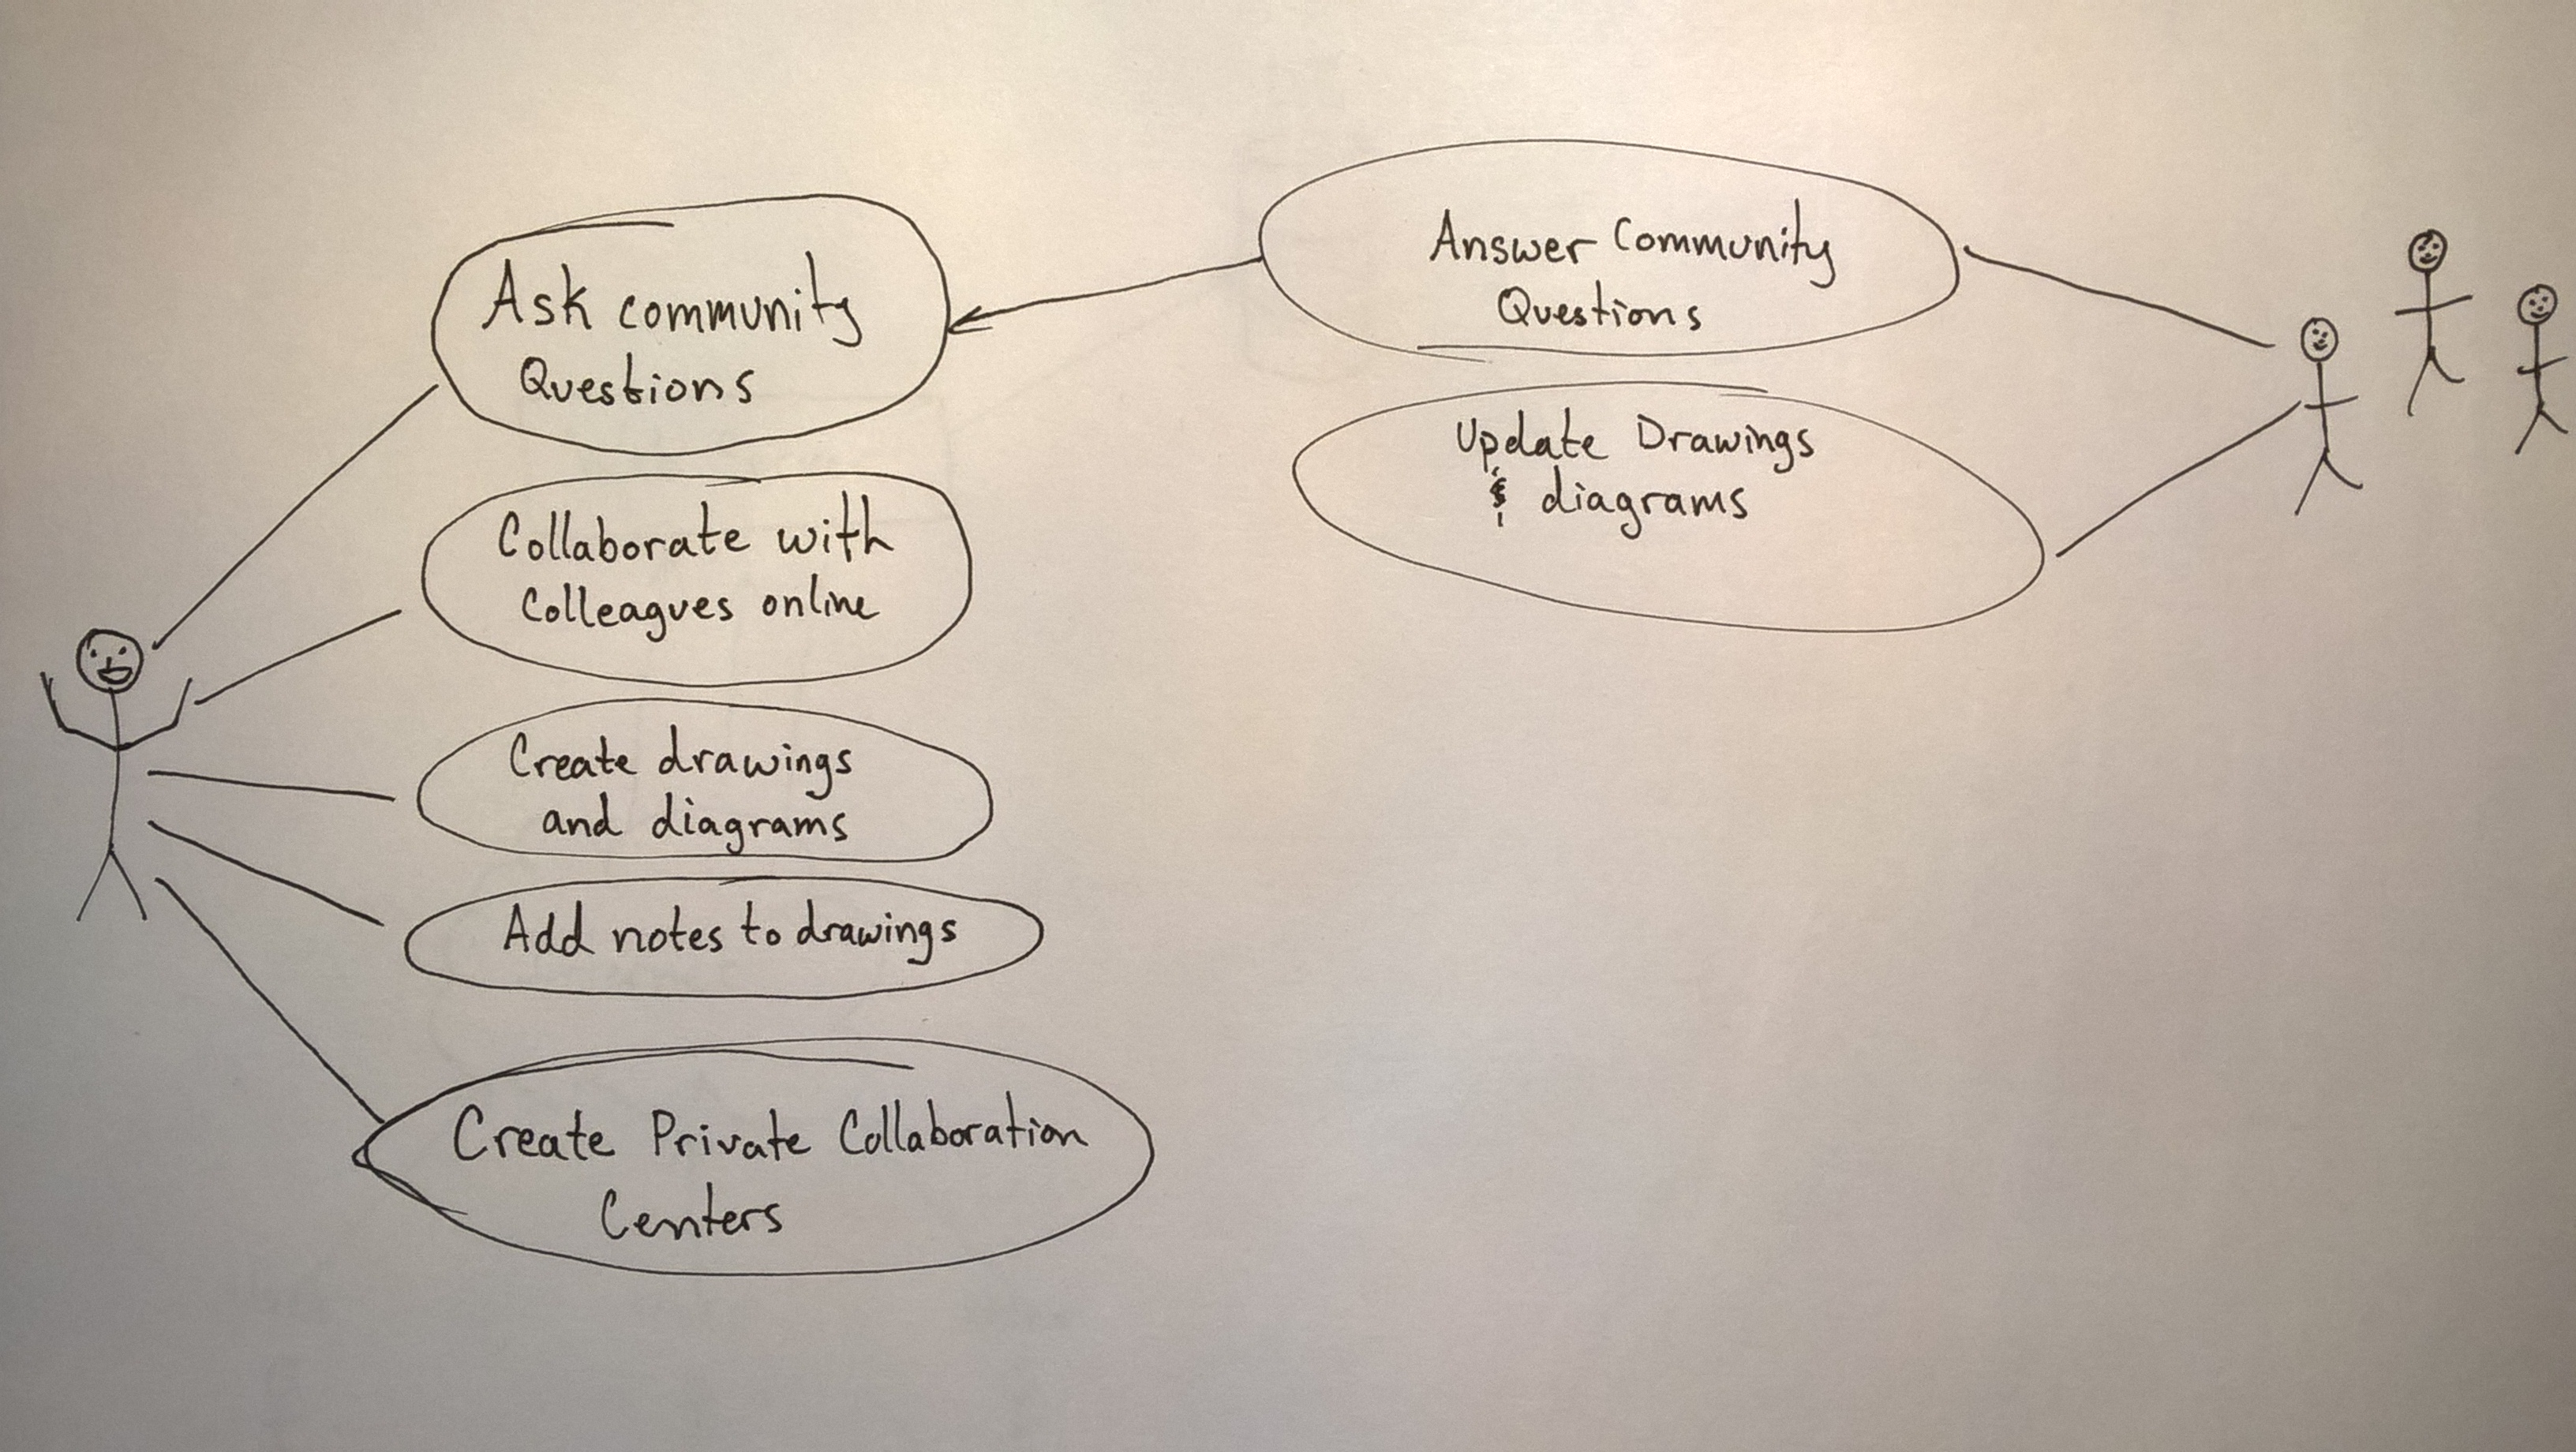 Ask community
Questions
Collaborate with
Colleagues online
Create drawings
and diagrams
Add notes to drawings
Create Private Collaboration
Centers
Answer Community
Questions
Update Drawings
& diagrams